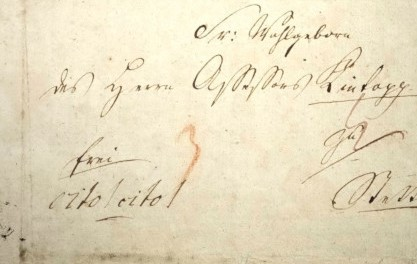 Sr: Wohlgeborn
des Herrn Assessors
frei
cito! cito!